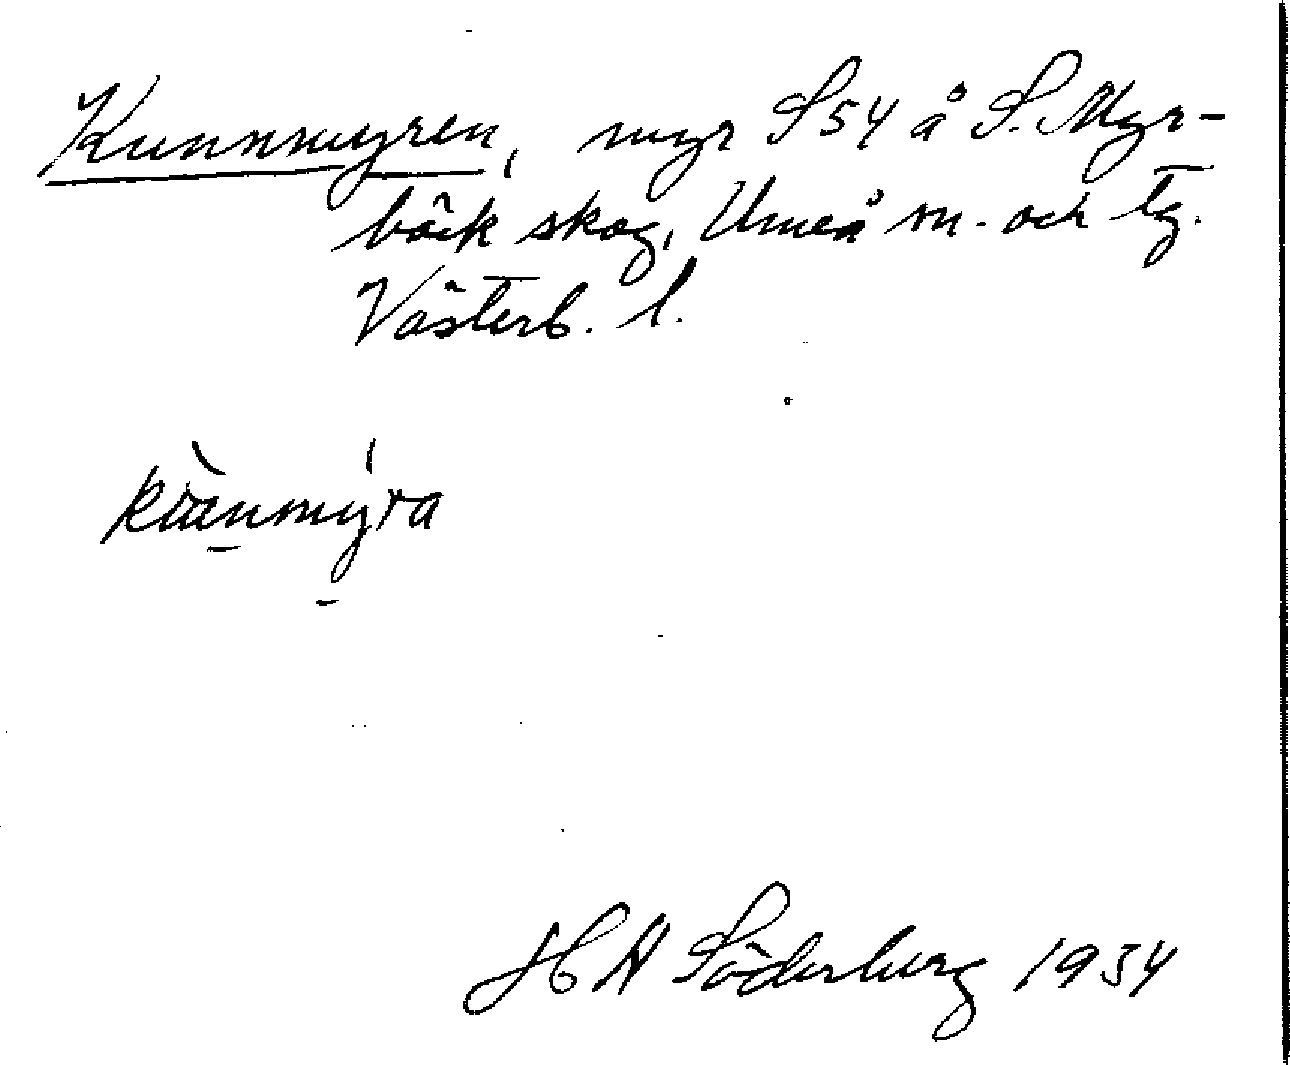 Kunnmyren, myr S54 å S. Myr-
bäck skog, Umeå sn. och tg.
Västerb. l.
H A Söderberg 1934